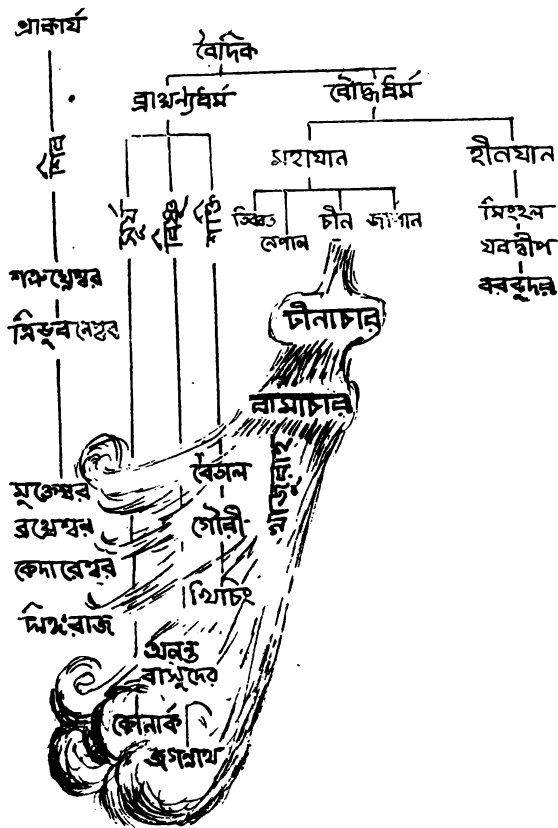 প্রাকার্য
বৈদিক
ব্রাহ্মণ্যধর্ম
বৌদ্ধধর্ম
মহাযান
হীনযান
শিব
সূর্য
বিষ্ণু
শক্তি
তিব্বত
নেপাল
চীন
জাপান
সিংহল
যবদ্বীপ
বরবুদর
শত্রুঘ্নেশ্বর
ত্রিভুবনেশ্বর
চীনাচার
বামাচার
খাজুরাহ
মুক্তেশ্বর
ব্রহ্মেশ্বর
কেদারেশ্বর
লিঙ্গরাজ
বৈতাল
গৌরী
খিচিং
অনন্ত
বাসুদেব
কোনার্ক
জগন্নাথ